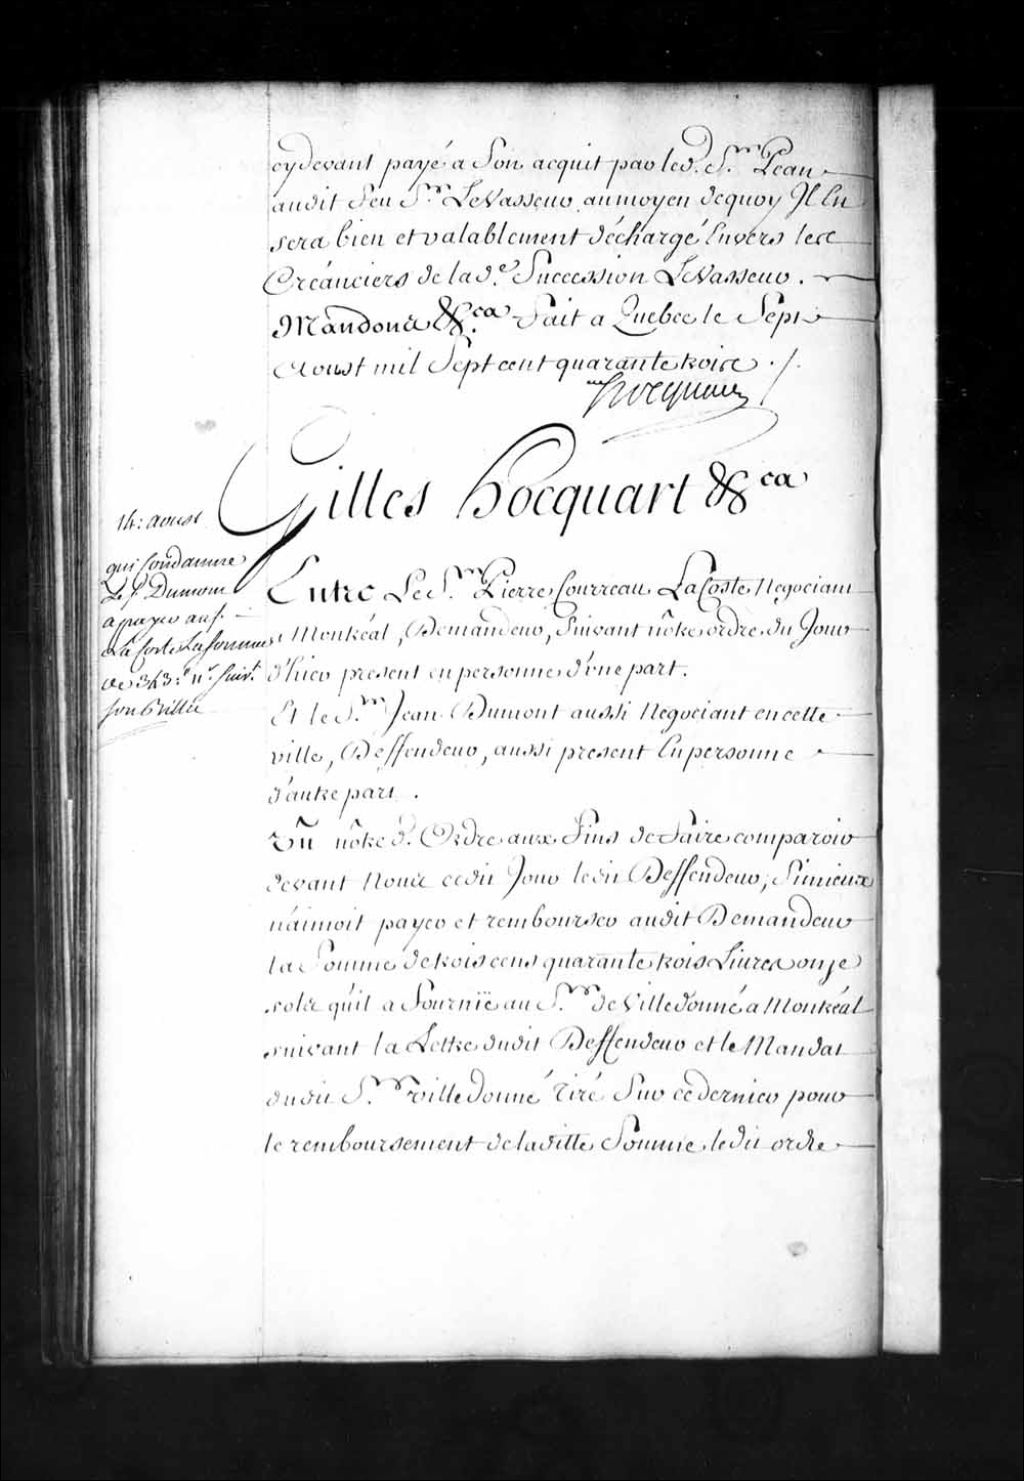 cydevant payé a Son acquit par led. S.r Pean
audit feu S.r LeVasseur aumoyen dequoy Il En
sera bien et valablement déchargé Envers les
Créanciers de la d.e Succession LeVasseur.
Mandons &c.a Fait a Quebec le Sept
Aoust mil Sept cent quarante trois ./.
Hocquart
Gilles Hocquart &c.a
14: aoust
qui Condamne
Le S. Dumont
a payer au S.
La Coste La Somme
de 343: 11.s Suiv.t
Entre Le S.r Pierre Courreau LaCoste Negociant
a Montréal, Demandeur, Suivant nôtre ordre du Jour
d'hier present en personne d'une part.
Et le S.r Jean Dumont aussi Negociant en cette
ville, Deffendeur, aussi present En personne
d'autre part.
Vû nôtre d. Ordre aux Fins de Faire comparoir
devant Nous cedit Jour ledit Deffendeur, Si mieux
n'aimoit payer et rembourser audit Demandeur
la Somme de trois cens quarante trois Livres onze
sols qu'il a Fournïe au S.r de Villedonné a Montréal
suivant la Lettre dudit Deffendeur et le Mandat
dudit S.r villedonné tiré Sur ce dernier pour
le remboursement de laditte Somme, ledit ordre